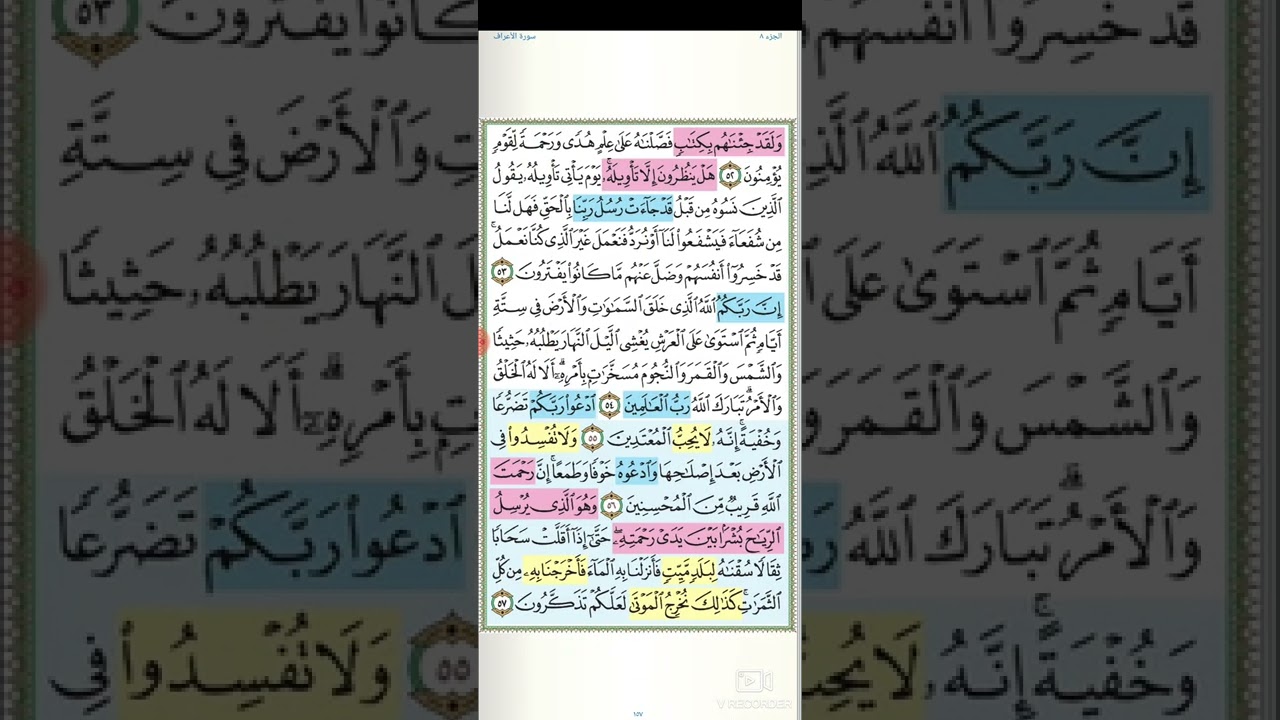 الجزء ٨
سورة الأعراف
وَلَقَدْ جِئْنَٰهُم بِكِتَٰبٍ فَصَّلْنَٰهُ عَلَىٰ عِلْمٍ هُدًى وَرَحْمَةً لِّقَوْمٍ
يُؤْمِنُونَ ٥٢ هَلْ يَنظُرُونَ إِلَّا تَأْوِيلَهُۥ ۚ يَوْمَ يَأْتِى تَأْوِيلُهُۥ يَقُولُ
ٱلَّذِينَ نَسُوهُ مِن قَبْلُ قَدْ جَآءَتْ رُسُلُ رَبِّنَا بِٱلْحَقِّ فَهَل لَّنَا
مِن شُفَعَآءَ فَيَشْفَعُوا۟ لَنَآ أَوْ نُرَدُّ فَنَعْمَلَ غَيْرَ ٱلَّذِى كُنَّا نَعْمَلُ ۚ
قَدْ خَسِرُوٓا۟ أَنفُسَهُمْ وَضَلَّ عَنْهُم مَّا كَانُوا۟ يَفْتَرُونَ ٥٣
إِنَّ رَبَّكُمُ ٱللَّهُ ٱلَّذِى خَلَقَ ٱلسَّمَٰوَٰتِ وَٱلْأَرْضَ فِى سِتَّةِ
أَيَّامٍ ثُمَّ ٱسْتَوَىٰ عَلَى ٱلْعَرْشِ يُغْشِى ٱلَّيْلَ ٱلنَّهَارَ يَطْلُبُهُۥ حَثِيثًا
وَٱلشَّمْسَ وَٱلْقَمَرَ وَٱلنُّجُومَ مُسَخَّرَٰتٍۭ بِأَمْرِهِۦٓ ۗ أَلَا لَهُ ٱلْخَلْقُ
وَٱلْأَمْرُ ۗ تَبَارَكَ ٱللَّهُ رَبُّ ٱلْعَٰلَمِينَ ٥٤ ٱدْعُوا۟ رَبَّكُمْ تَضَرُّعًا
وَخُفْيَةً ۚ إِنَّهُۥ لَا يُحِبُّ ٱلْمُعْتَدِينَ ٥٥ وَلَا تُفْسِدُوا۟ فِى
ٱلْأَرْضِ بَعْدَ إِصْلَٰحِهَا وَٱدْعُوهُ خَوْفًا وَطَمَعًا ۚ إِنَّ رَحْمَتَ
ٱللَّهِ قَرِيبٌ مِّنَ ٱلْمُحْسِنِينَ ٥٦ وَهُوَ ٱلَّذِى يُرْسِلُ
ٱلرِّيَٰحَ بُشْرًۢا بَيْنَ يَدَىْ رَحْمَتِهِۦ ۖ حَتَّىٰٓ إِذَآ أَقَلَّتْ سَحَابًا
ثِقَالًا سُقْنَٰهُ لِبَلَدٍ مَّيِّتٍ فَأَنزَلْنَا بِهِ ٱلْمَآءَ فَأَخْرَجْنَا بِهِۦ مِن كُلِّ
ٱلثَّمَرَٰتِ ۚ كَذَٰلِكَ نُخْرِجُ ٱلْمَوْتَىٰ لَعَلَّكُمْ تَذَكَّرُونَ ٥٧
V RECORDER
١٥٧